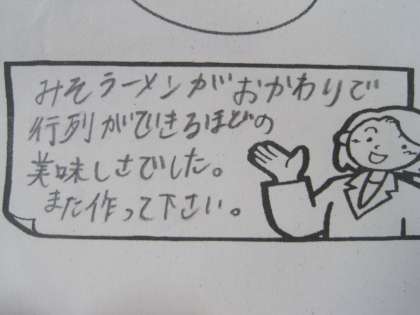 みそラーメンがおかわりで
行列ができるほどの
美味しさでした。
また作って下さい。